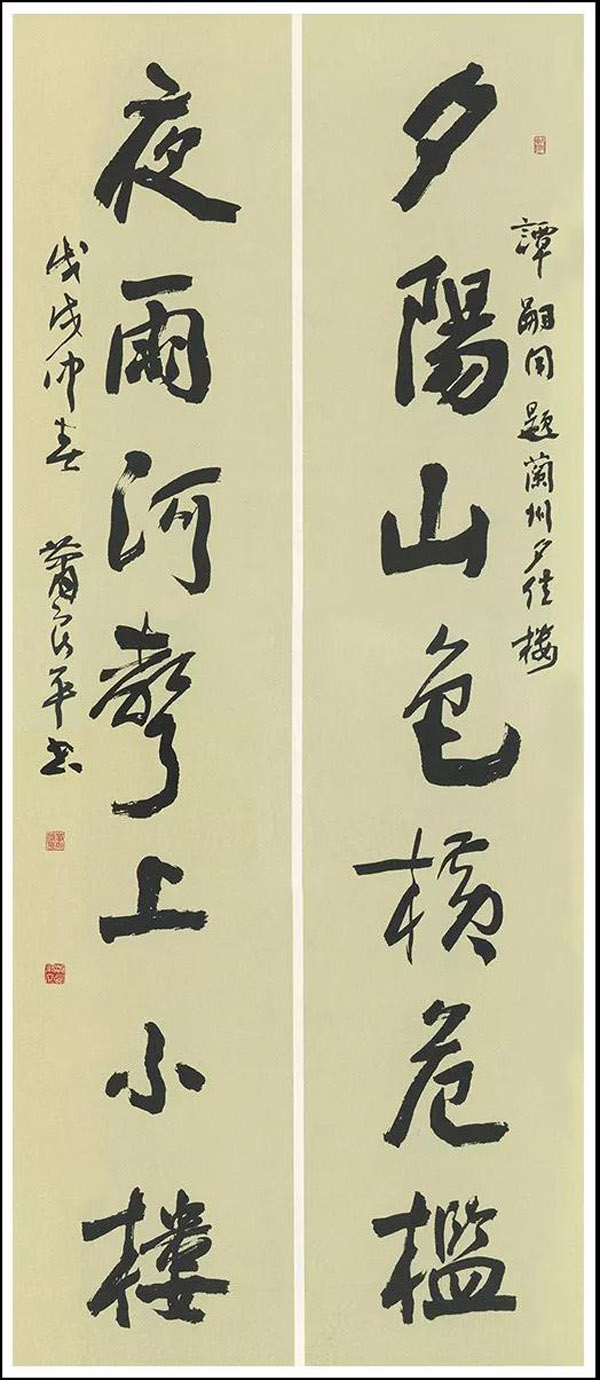 譚嗣同題蘭州夕佳樓
夕陽山色橫危檻
夜雨河聲上小樓
戊戌仲春 蕭良平書